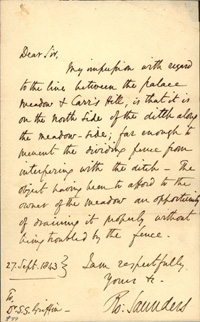 Dear Sir,
My impression with regard
to the line between the palace
meadow & Carr's Hill, is that it is
on the north side of the ditch along
the meadow-side; far enough to
prevent the dividing fence from
interfering with the ditch - The
object having been to afford to the
owner of the meadow an opportunity
of draining it properly without
being troubled by the fence.
27. Sept. 1843 } I am respectfully
Yours &c.
Ro: Saunders
To
Dr. S. S. Griffin -